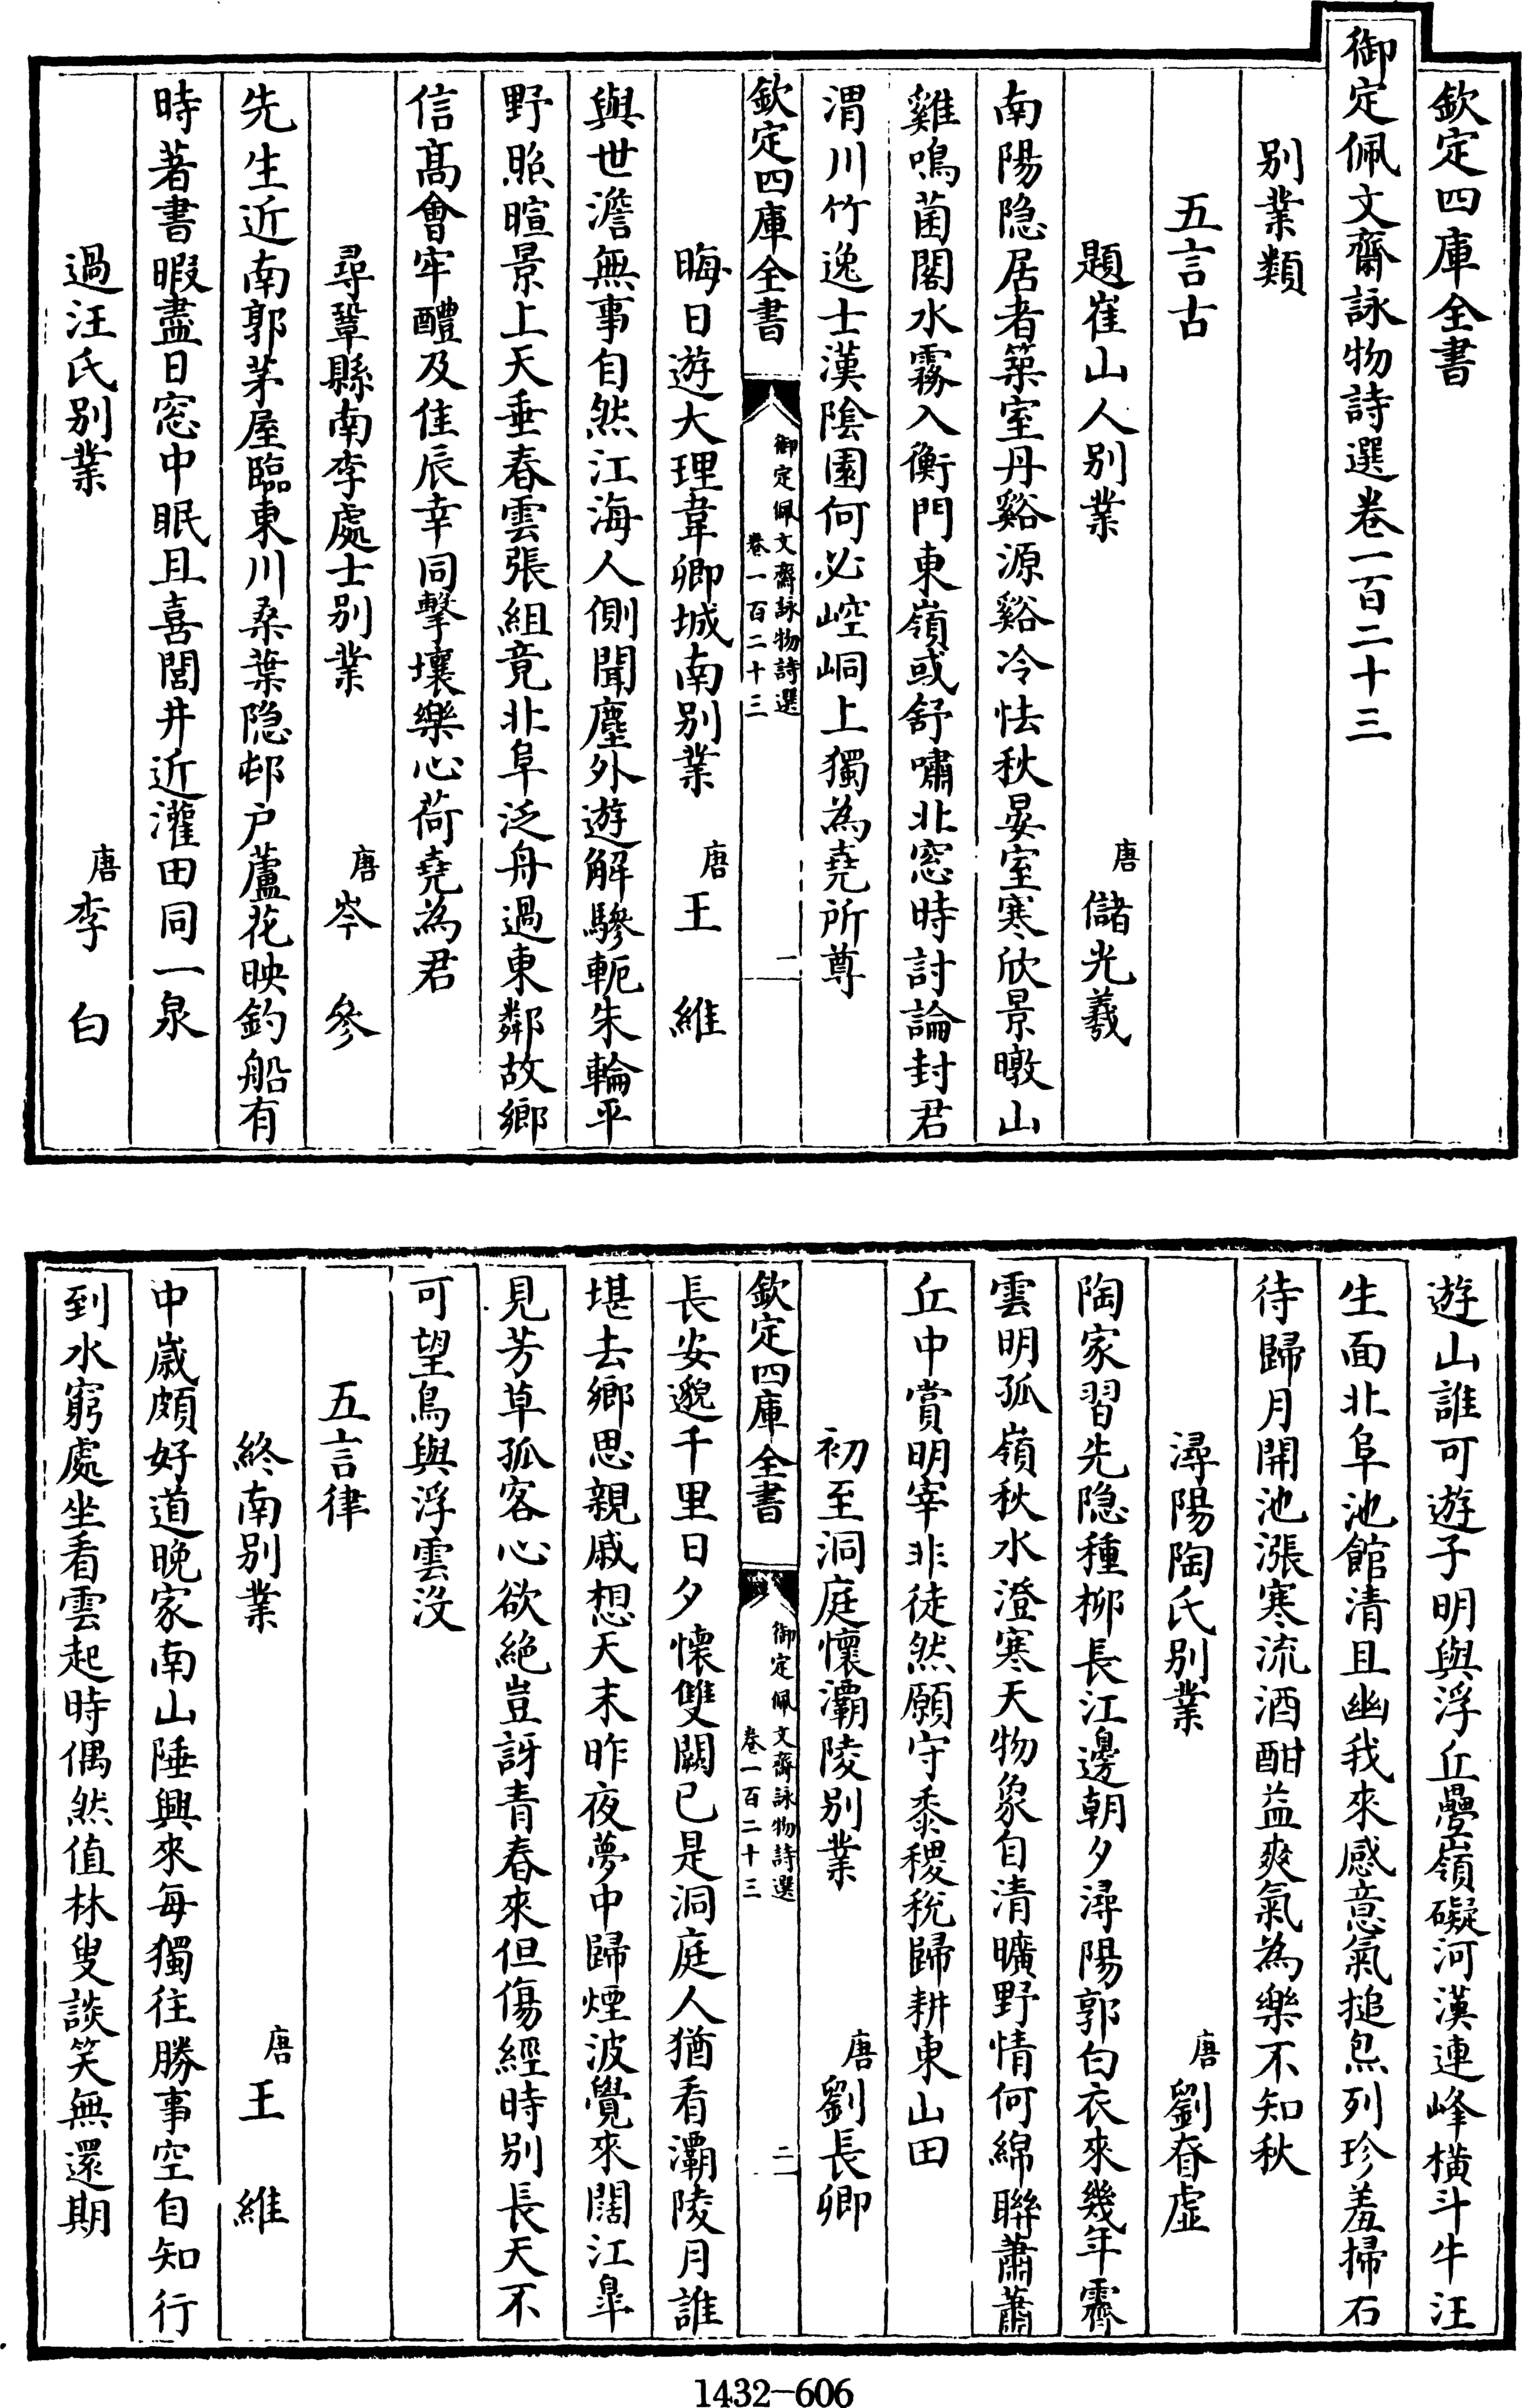 欽定四庫全書
御定佩文齋詠物詩選卷一百二十三
别業類
五言古
題崔山人别業　唐儲光羲
南陽隐居者築室丹谿源谿冷怯秋晏室寒欣景暾山
雞鳴菌閣水霧入衡門東嶺或舒嘯北窓時討論封君
渭川竹逸士漢陰園何必崆峒上獨為堯所尊
欽定四庫全書　御定佩文齋詠物詩選　卷一百二十三　一
晦日遊大理韋卿城南别業　唐王維
與世澹無事自然江海人側聞塵外遊解驂軛朱輪平
野照暄景上天垂春雲張組竟北阜泛舟過東鄰故鄉
信髙會牢醴及佳辰幸同擊壤樂心荷堯為君
尋鞏縣南李處士别業　唐岑參
先生近南郭茅屋臨東川桑葉隐邨户蘆花映釣船有
時著書暇盡日窓中眠且喜閭井近灌田同一泉
過汪氏别業　唐李白
遊山誰可遊子明與浮丘疊嶺礙河漢連峰橫斗牛汪
生面北阜池館清且幽我來感意氣搥炰列珍羞掃石
待歸月開池漲寒流酒酣益爽氣為樂不知秋
潯陽陶氏别業　唐劉昚虛
陶家習先隐種柳長江邊朝夕潯陽郭白衣來幾年霽
雲明孤嶺秋水澄寒天物象自清曠野情何綿聯蕭蕭
丘中賞明宰非徒然願守黍稷稅歸耕東山田
初至洞庭懷灞陵别業　唐劉長卿
欽定四庫全書　御定佩文齋詠物詩選　卷一百二十三　二
長安邈千里日夕懷雙闕已是洞庭人猶看灞陵月誰
堪去鄉思親戚想天末昨夜夢中歸煙波覺來闊江臯
見芳草孤客心欲絶豈訝青春來但傷經時别長天不
可望鳥與浮雲沒
五言律
終南别業　唐王維
中歲頗好道晚家南山陲興來每獨往勝事空自知行
到水窮處坐看雲起時偶然值林叟談笑無還期
1432-606